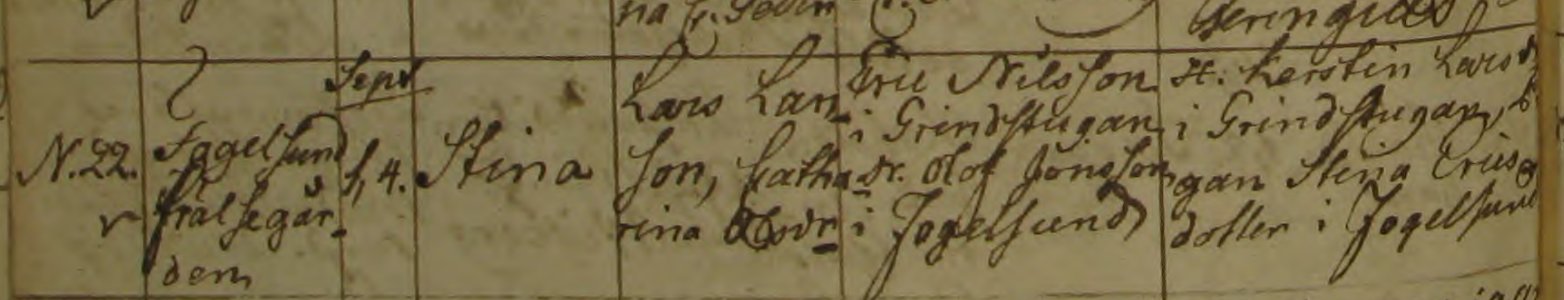 N.22.
Fogelsund
frälsegår-
den
Sept
f, 4.
Stina
Lars Lars-
son, Catha-
rina Olsdr
Eric Nilsson
i Grindstugan
dr. Olof Jönsson
i Fogelsund
H. Kerstin Larsdr
i Grindstugan, P
gan Stina Erics
dotter i Fogelsund